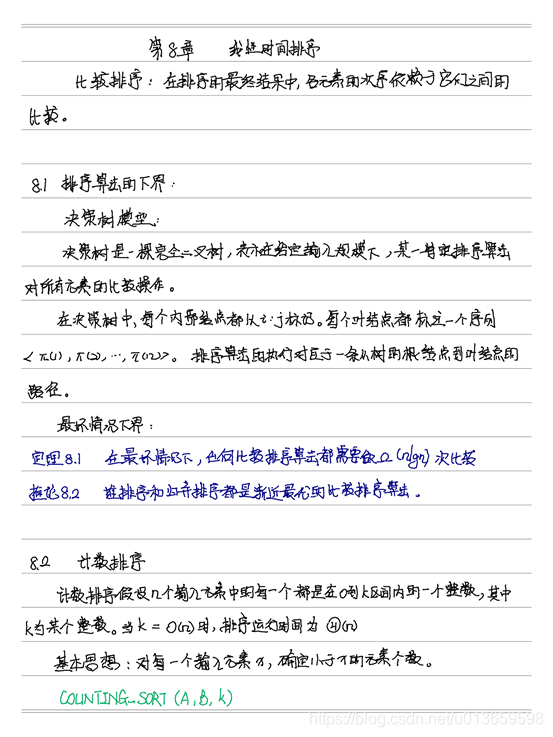 第8章 线性时间排序
比较排序：在排序的最终结果中,各元素的次序依赖于它们之间的
比较。
8.1 排序算法的下界：
决策树模型：
决策树是一棵完全二叉树，表示在给定输入规模下，某一特定排序算法
对所有元素的比较操作。
在决策树中,每个内部结点都以i:j标记。每个叶结点都标注一个序列
<π(1),π(2),…,π(n)>。排序算法的执行对应于一条从树的根结点到叶结点的
路径。
最坏情况下界：
定理8.1 在最坏情况下，任何比较排序算法都需要做Ω(nlgn)次比较
推论8.2 堆排序和归并排序都是渐近最优的比较排序算法。
8.2 计数排序
计数排序假设n个输入元素中的每一个都是在0到k区间内的一个整数,其中
k为某个整数。当k=O(n)时,排序运行时间为Θ(n)
基本思想：对每一个输入元素x，确定小于x的元素个数。
COUNTING_SORT(A,B,k)
https://blog.csdn.net/u013659598